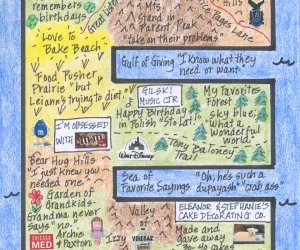 remembers
birthdays
Great listener
& Mts.
Stand in
Parent Peak
"take on their problems"
Hills
Lane
Love To
Bake Beach
Gulf of Giving "I know what they
need or want."
Food Pusher
Prairie "but
Leiann's trying to diet"
GILSKI
MUSIC CTR
Happy Birthday
in Polish "Sto Lat!"
My Favorites
Forest
sky blue,
What a
Wonderful
World
I'M OBSESSED
WITH
WALT DISNEY
Tony DaToney
Trail
Bear Hug Hills
"I just knew you
needed one."
Garden of
Grandkids-
Grandma never
says "no."
Archie
Paxton
CHICAGO
MED
Izzy
Valley
VINEGAR
Sea of
Favorite Sayings
"Oh, he's such a
dupayash" "crab ass
ELEANOR & STEPHANIE'S
CAKE DECORATING CO.
Made and
gave away
30-40 cakes